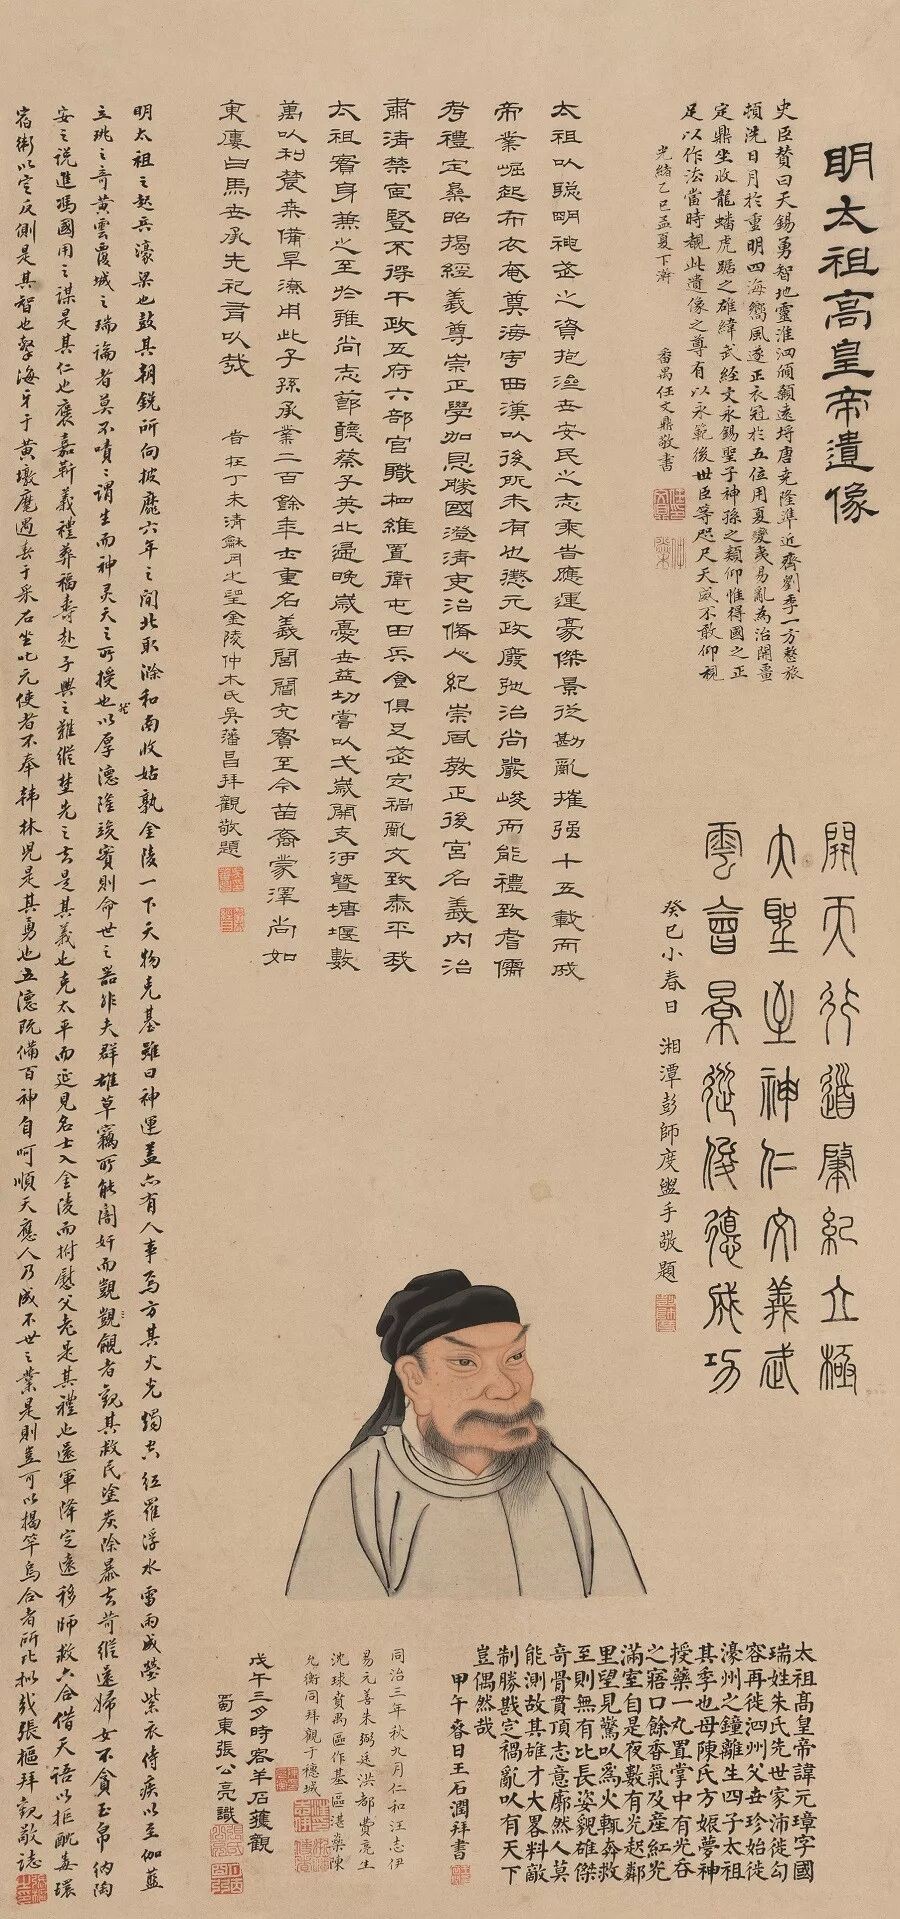 明太祖高皇帝遺像
史臣贊曰天錫勇智地靈淮泗頎顙遠埒唐堯隆準近齊劉季一方整旅
頓洗日月於重明四海嚮風遂正衣冠於五位用夏變夷易亂為治開畺
定鼎坐收龍蟠虎踞之雄緯武經文永錫聖子神孫之類仰惟得國之正
足以作法當時覩此遺像之尊有以永範後世臣等咫尺天威不敢仰視
光緒乙巳孟夏下澣 番禺任文鼎敬書
開天行道肇紀立極
大聖至神仁文義武
雲會景從俊德成功
癸巳小春日 湘潭彭師度盥手敬題
太祖以聡明神武之資抱濟世安民之志乘旹應運豪傑景從勘亂摧强十五載而成
帝業崛起布衣奄奠海宇西漢以後所未有也懲元政廢弛治尚嚴峻而能禮致耆儒
考禮定樂昭揭經義尊崇正學加恩勝國澄清吏治脩人紀崇風教正後宮名義內治
肅清禁宦豎不得干政五府六部官職相維置衛屯田兵食俱足武定禍亂文致泰平我
太祖實身兼之至於雅尚志節聽蔡子英北還晚歲憂世益切嘗以弋歲開支河暨塘堰數
萬以利農桒備旱潦用此子孫承業二百餘年士重名義閭閻充實至今苗裔蒙澤尚如
東廔白馬世承先祀有以哉
旹在丁未清龢月之望金陵仲木氏吳藩昌拜觀敬題
明太祖之起兵濠梁也鼓其朝銳所向披靡六年之間北取滁和南收姑孰金陵一下天物克基雖曰神運盖亦有人事焉方其火光燭空紅羅浮水雷雨成瑩紫衣侍疾以至伽藍
立珓之奇黃雲覆城之瑞論者莫不嘖之謂生而神灵天之所授也以厚德隆竢賓則命世之器非夫群雄草竊所能闇奸而覬覦者觀其救民塗炭除暴去苛縱遠婦女不貪玉帛納陶
安之說進馮國用之謀是其仁也褒嘉靳義禮葬福壽赴子興之難縱埜先之去是其義也克太平而延見名士入金陵而拊慰父老是其禮也還軍降定遠移師救六合借天語以拒酖毒環
宿衛以定反側是其智也擊海牙于黃墩麾過春于采石坐叱元使者不奉韓林児是其勇也五德既備百神自呵順天應人乃成不世之業是則豈可以揭竿烏合者所比拟哉張樞拜觀敬誌
太祖高皇帝諱元璋字國
瑞姓朱氏先世家沛徙句
容再徙泗州父世珍始徙
濠州之鐘離生四子太祖
其季也母陳氏方娠夢神
授藥一丸置掌中有光吞
之寤口餘香氣及產紅光
滿室自是夜數有光起鄰
里望見驚以為火輒奔救
至則無有比長姿貌雄傑
奇骨貫頂志意廓然人莫
能測故其雄才大畧料敵
制勝戡定禍亂以有天下
豈偶然哉
甲午春日王石潤拜書
同治三年秋九月仁和汪志伊
易元善朱弼廷洪都費庶生
沈球寳禺區作基區湛藥陳
允衡同拜觀于穗城
戊午三夕時客羊石獲觀
蜀東張公亮識